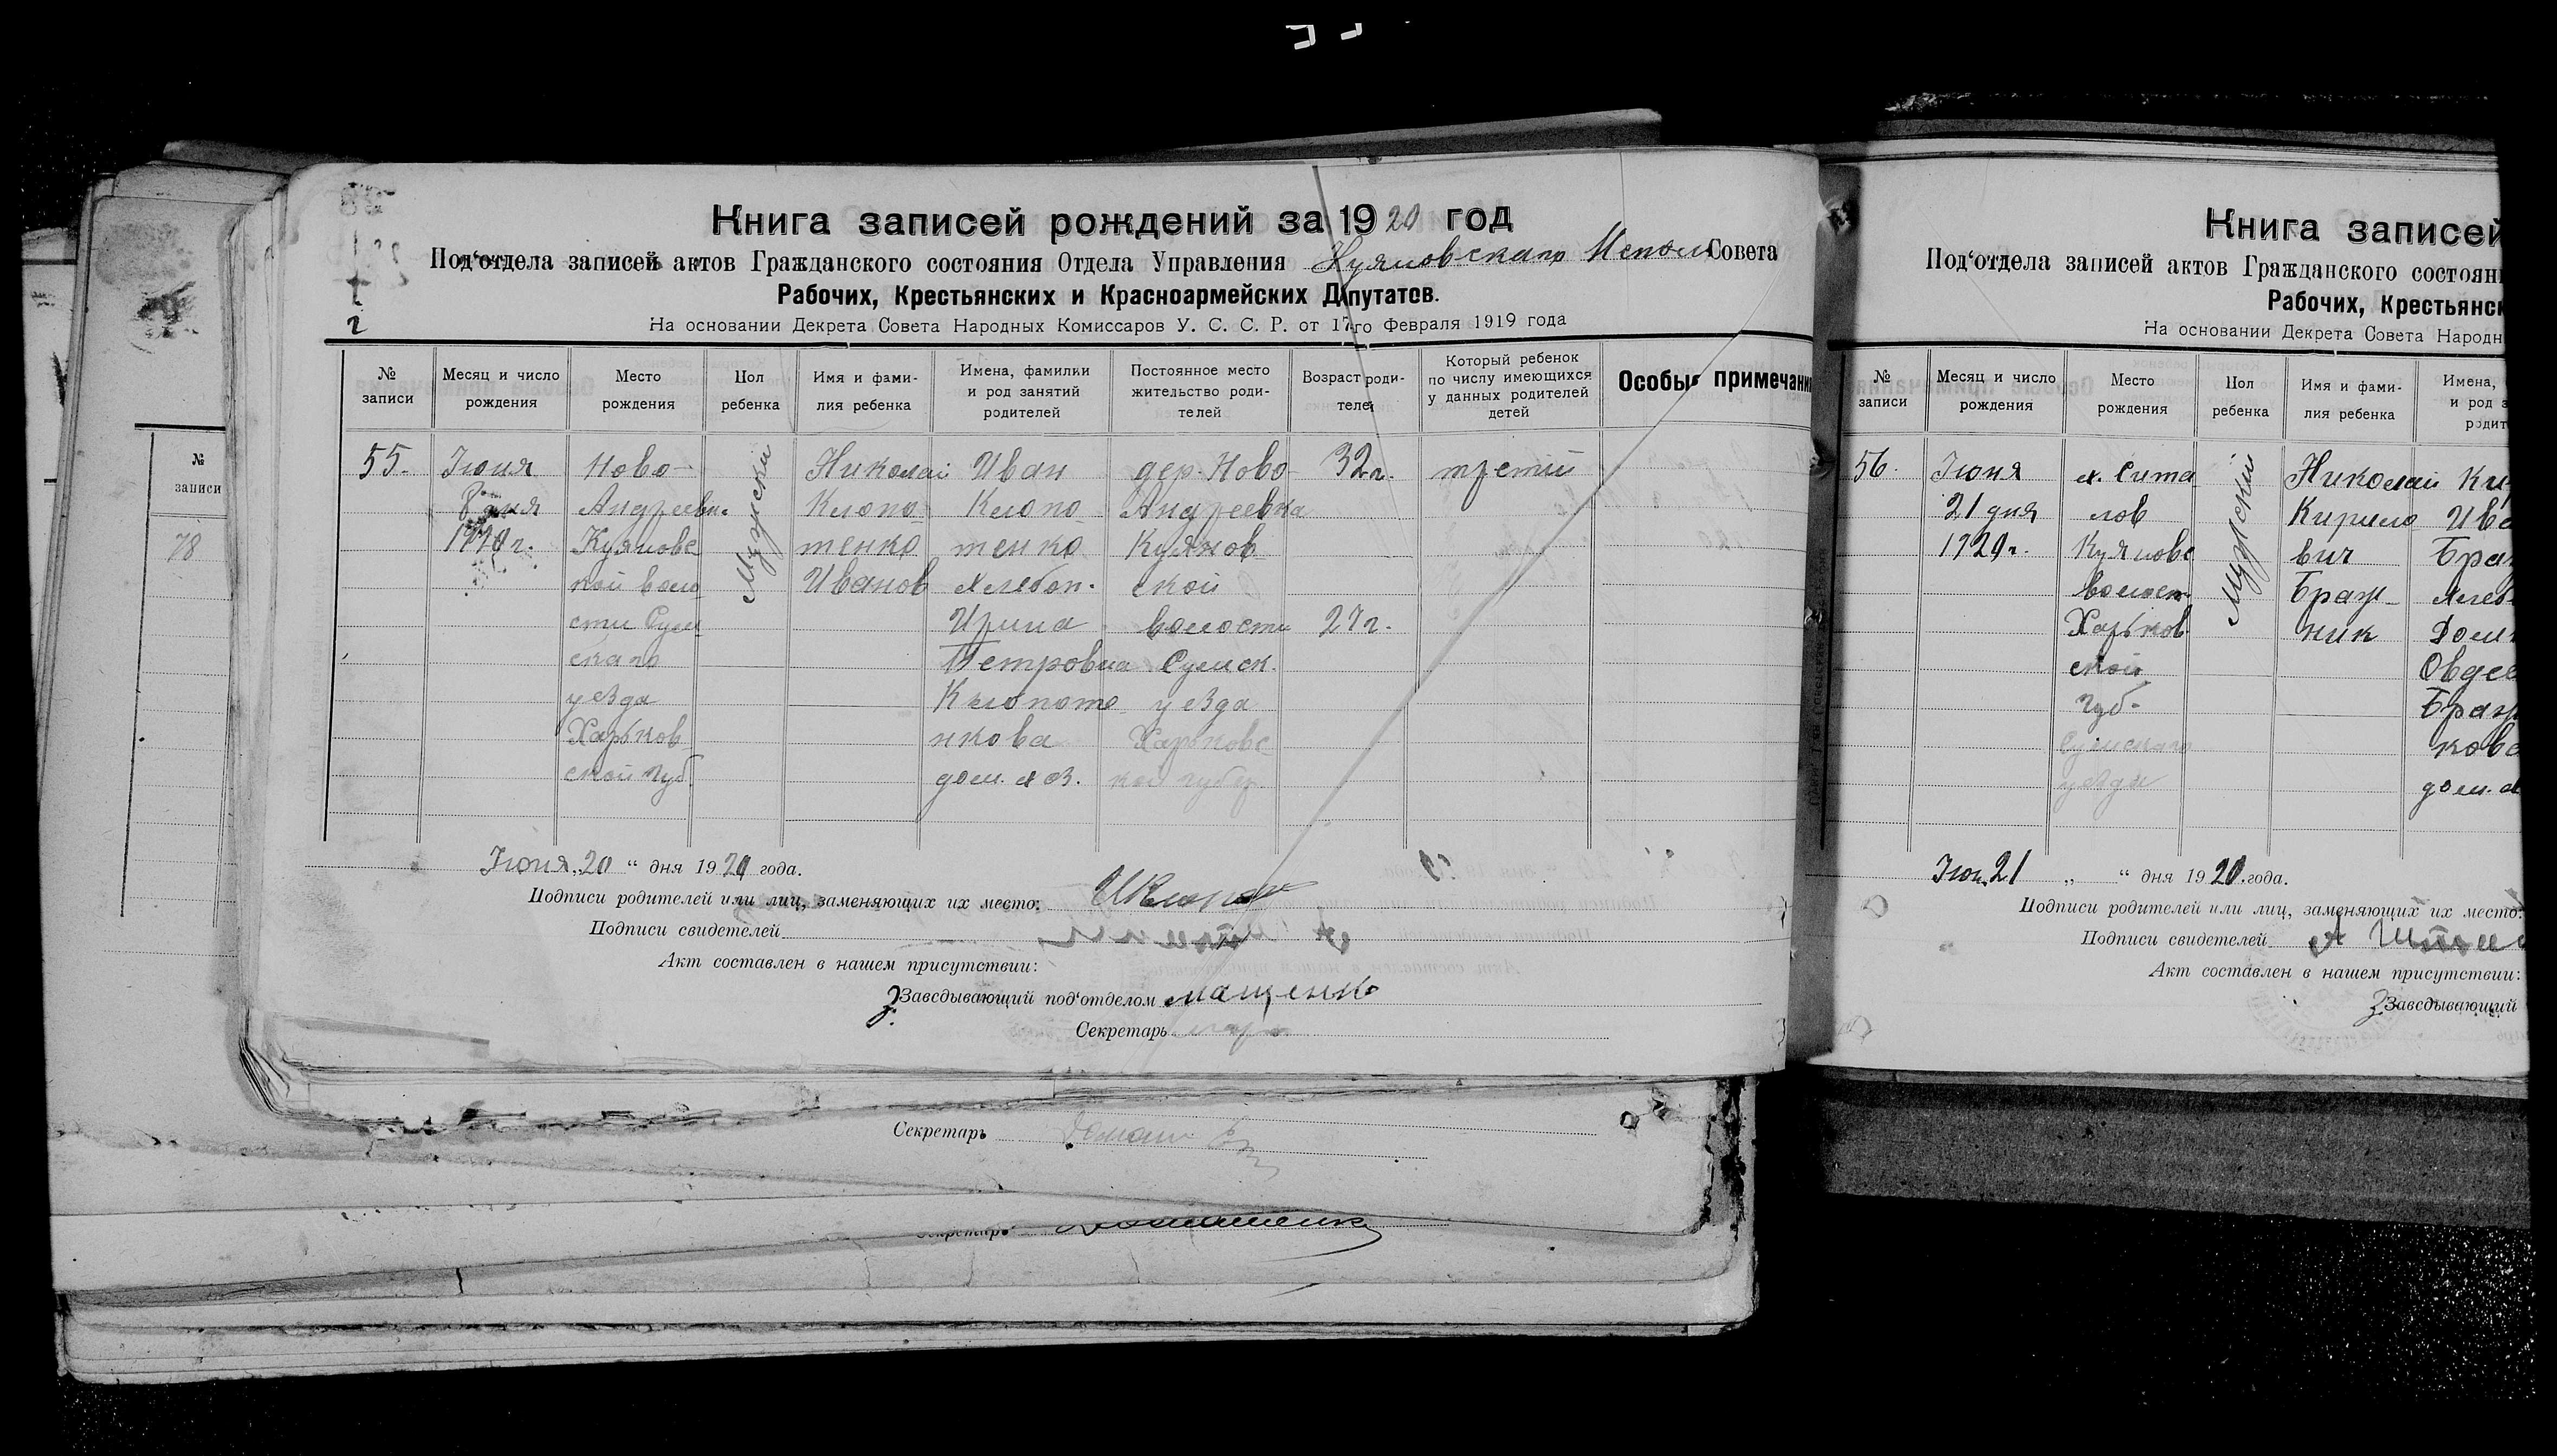 Книга записей рождений за 1920 год
Под‘отдела записей актов Гражданского состояния Отдела Управления Куяновскаго Испол Совета
Рабочих, Крестьянских и Красноармейских Депутатов.
На основании Декрета Совета Народных Комиссаров У. С. С. Р. от 17го Февраля 1919 года
№ записи
Месяц и число рождения
Место рождения
Пол ребенка
Имя и фами-
лия ребенка
Имена, фамилии
и род занятий
родителей
Постоянное место
жительство роди-
телей
Возраст роди-
телей
Который ребенок
по числу имеющихся
у данных родителей
детей
Особые примечани
55.
Июня
8 дня
1920 г.
Ново-
Андреевк.
Куяновс
кой воло
сти Сум
скаго
уезда
Харьков
ской губ.
Мужский
Николай
Клопо
тенко
Иванов
Иван
Клопо
тенко
хлебоп.
Ирина
Петровна
Клопоте
нкова
дом. хоз.
дер. Ново-
Андреевка
Куянов
ской
волости
Сумск.
уезда
Харьковс
кой губер.
32 г.
27 г.
третий
Июня „20 “ дня 1920 года.
Подписи родителей или лиц, заменяющих их место:
Подписи свидетелей
Акт составлен в нашем присутствии:
З. Заведывающий под‘отделом Мащенко
Секретарь
Секретарь
Секретарь
№
записи
78
Книга записей
Под‘отдела записей актов Гражданского состоян
Рабочих, Крестьянск
На основании Декрета Совета Народн
№ записи
Месяц и число рождения
Место рождения
Пол ребенка
Имя и фами-
лия ребенка
Имена,
и род з
родит
56.
Июня
21 дня
1920 г.
х. Сита
лов
Куяновс
волост.
Харьков
ской
губ.
Сумскаго
уезда
Мужский
Николай
Кирило
вич
Браж-
ник
Ки
Ива
Браж
хлеб
Дом
Овдее
Браж
кова
дом. х
Июн. 21 „ “ дня 1920 года.
Подписи родителей или лиц, заменяющих их место:
Подписи свидетелей
Акт составлен в нашем присутствии:
З. Заведывающий